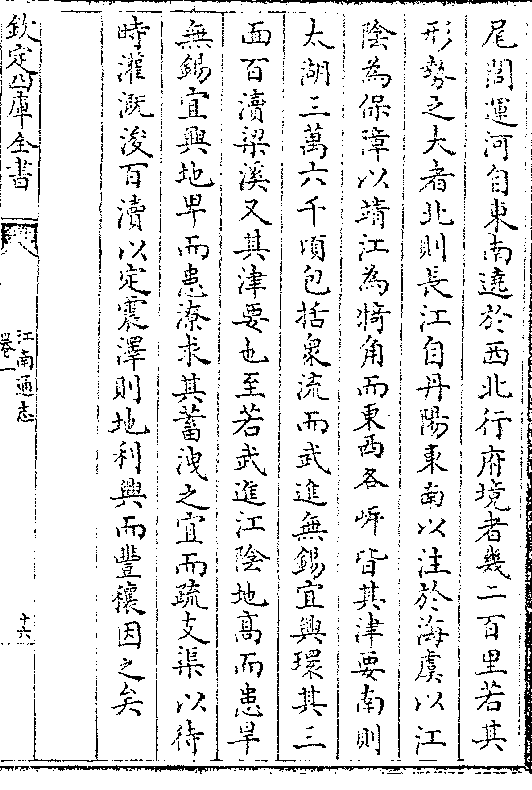 尾閭運河自東南遶於西北行府境者幾二百里若其
形勢之大者北則長江自丹陽東南以注於海虞以江
陰為保障以靖江為犄角而東西各㟁皆其津要南則
太湖三萬六千頃包括衆流而武進無錫宜興環其三
面百瀆梁溪又其津要也至若武進江陰地髙而患旱
無錫宜興地卑而患潦求其蓄洩之宜而疏支渠以待
時灌溉浚百瀆以定震澤則地利興而豐穰因之矣
欽定四庫全書
江南通志
卷一
十六